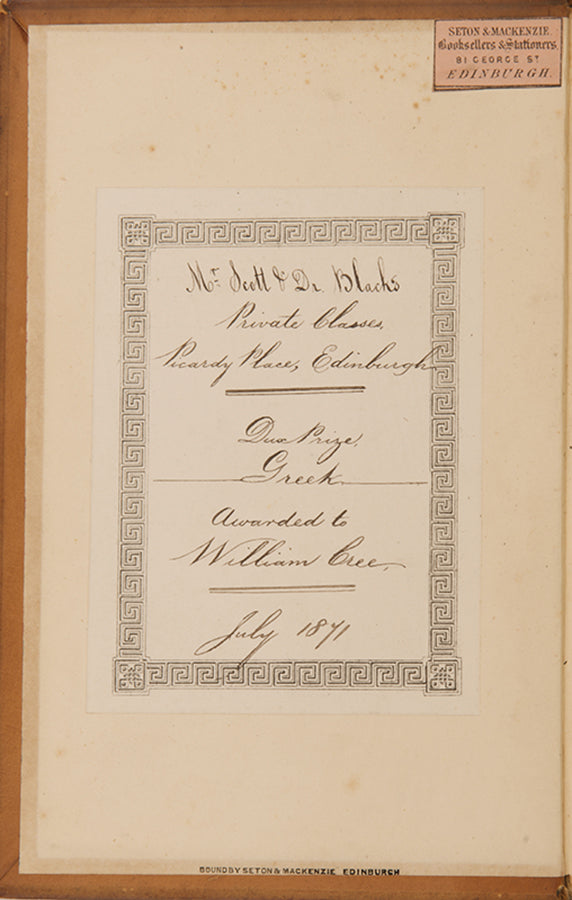 SETON & MACKENZIE
Booksellers & Stationers,
81 GEORGE ST
EDINBURGH.
Mr. Scott & Dr. Blacks
Private Classes,
Picardy Place, Edinburgh
Dux Prize,
Greek
Awarded to
William Cree,
July 1871
BOUND BY SETON & MACKENZIE EDINBURGH